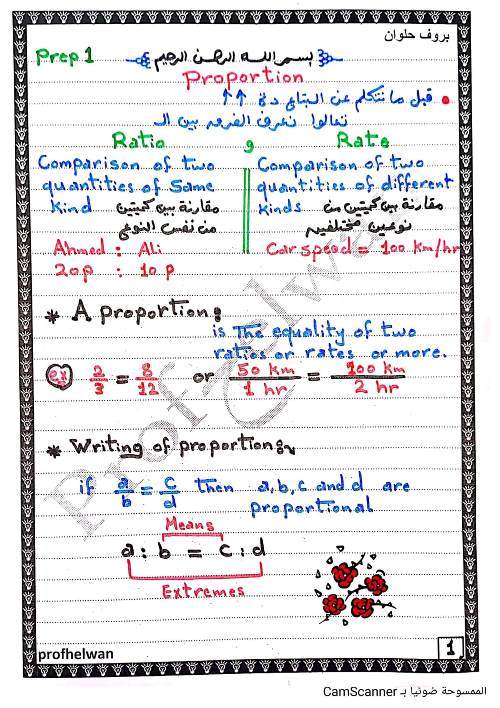 بروف حلوان
Prep 1
بسم الله الرحمن الرحيم
Proportion
قبل ما نتكلم عن البتاع دة ↑↑
تعالوا نعرف الفرق بين الـ
Ratio و Rate
Comparison of two
quantities of Same
kind مقارنة بين كميتين
من نفس النوع
Ahmed : Ali
20 p : 10 p
Comparison of two
quantities of different
kinds مقارنة بين كميتين من
نوعين مختلفين
Car speed = 100 km/hr
* A proportion:
is The equality of two
ratios or rates or more.
ex 2/3 = 8/12 or 50 km/1 hr = 100 km/2 hr
* Writing of proportion:
if a/b = c/d then a, b, c and d are
proportional
Means
a : b = c : d
Extremes
profhelwan
1
Profhelwan
الممسوحة ضوئيا بـ CamScanner